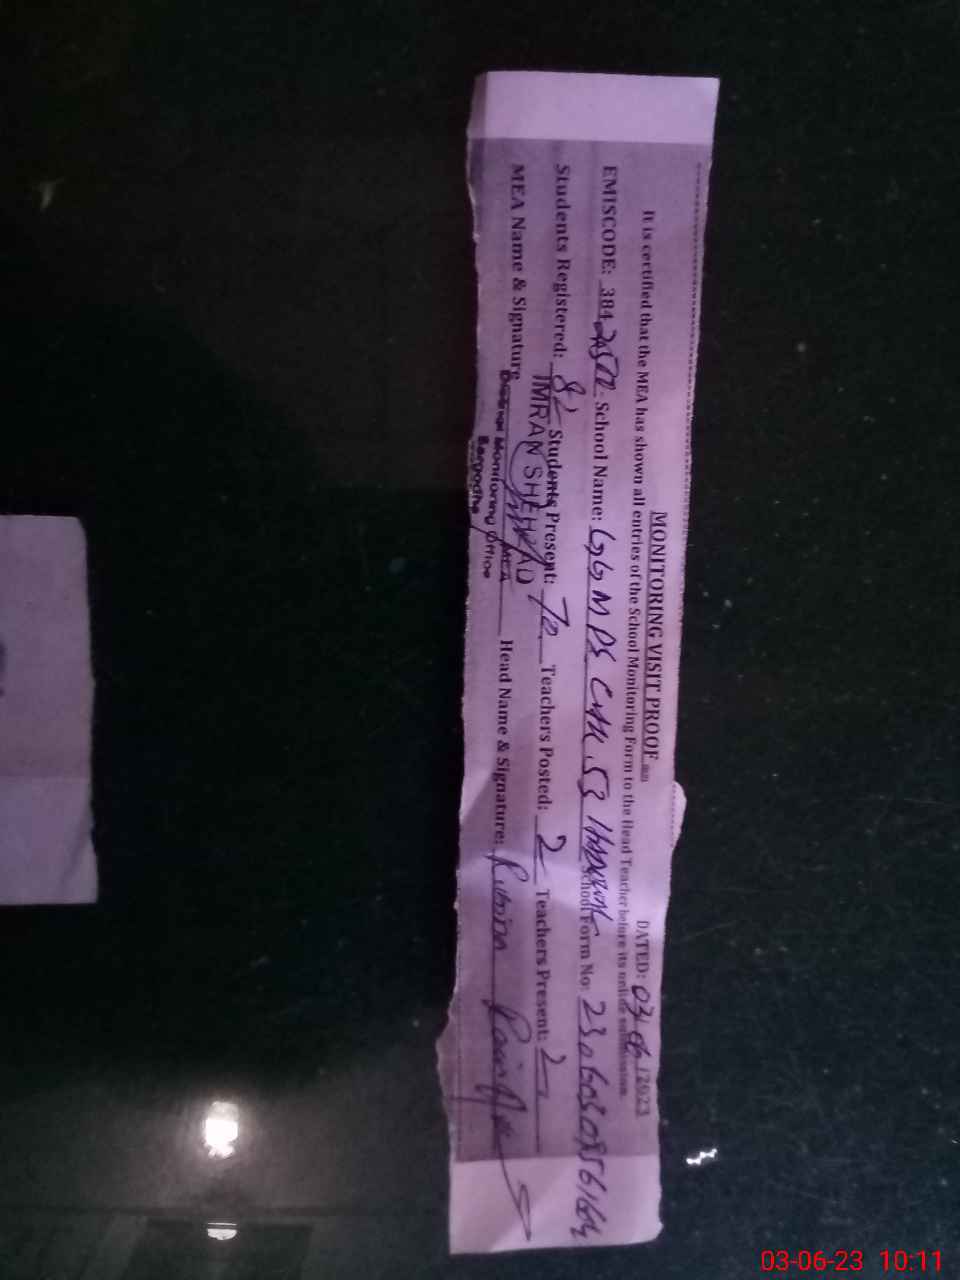 MONITORING VISIT PROOF
DATED: 03/06/2023
It is certified that the MEA has shown all entries of the School Monitoring Form to the Head Teacher before its online submission.
EMISCODE: 384 School Name: GGMPS CHK. 53 School Form No: 23
Students Registered: 82 Students Present: 70 Teachers Posted: 2 Teachers Present: 2
MEA Name & Signature IMRAN SHEHZAD Head Name & Signature: Rubina
MEA
District Monitoring Office
Sargodha
03-06-23 10:11